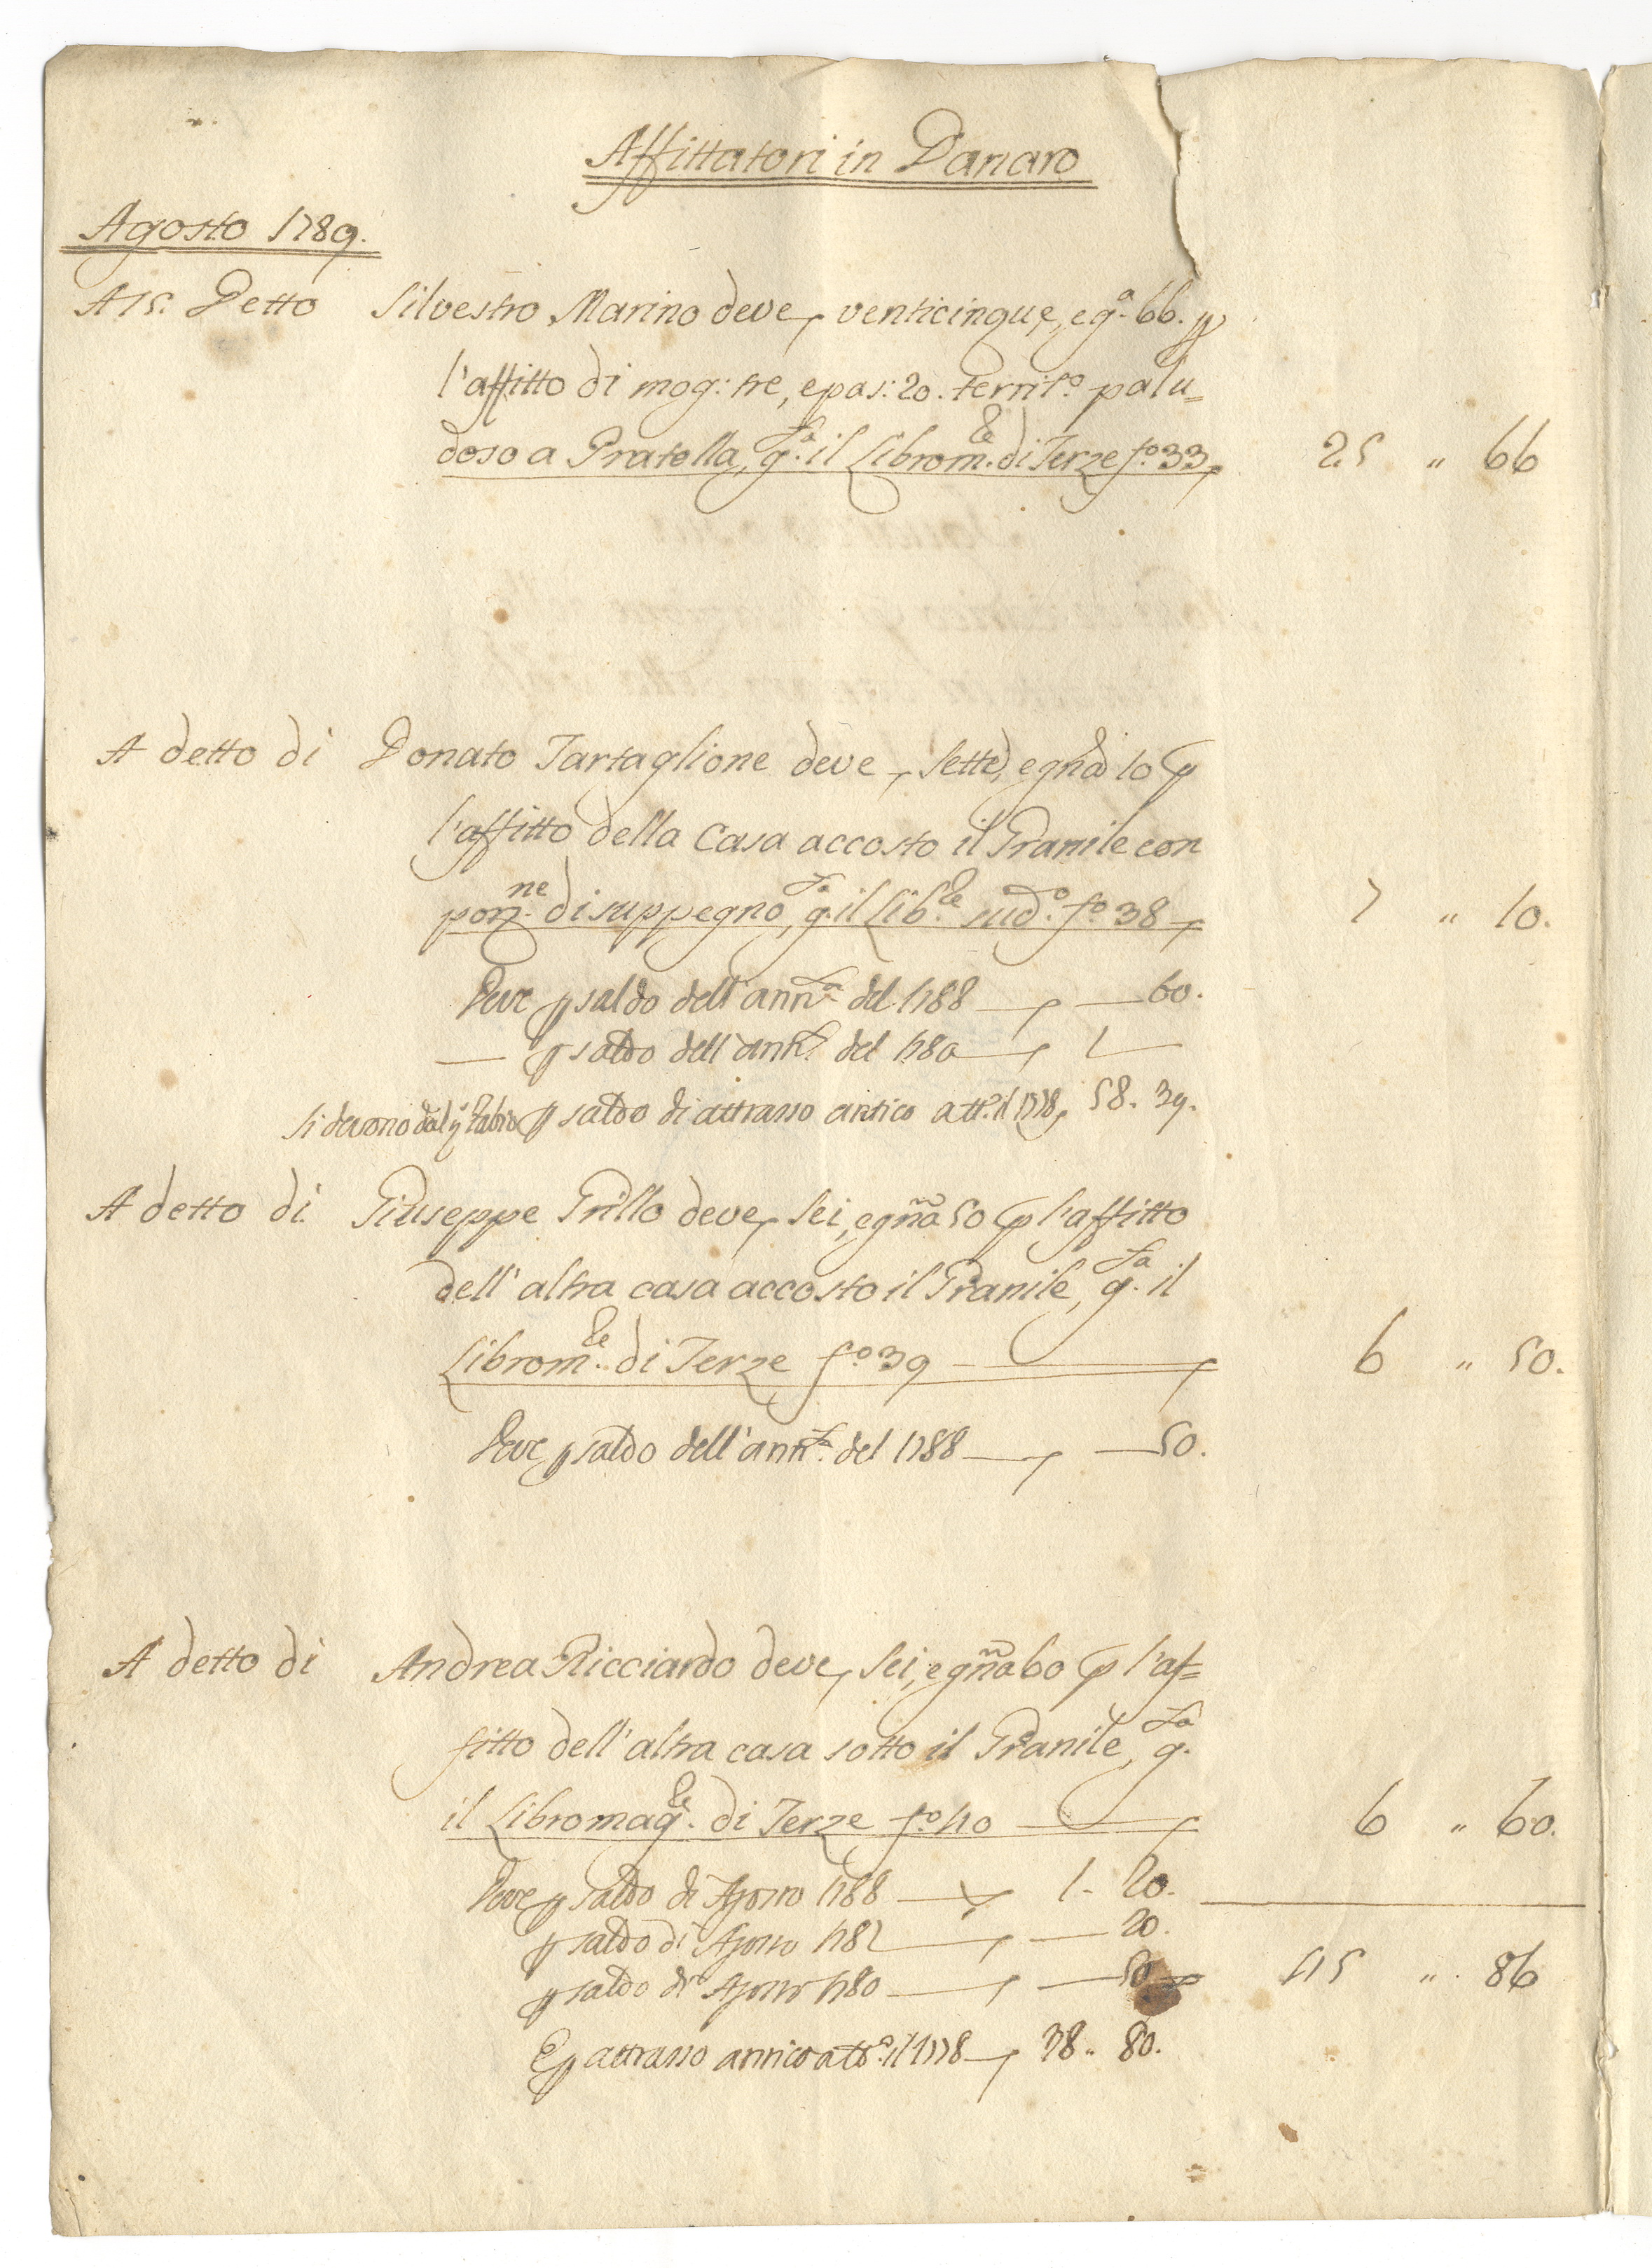 Affittatori in Danaro
Agosto 1789.
A 15. Detto Silvestro Marino deve, venticinque, e g.ª 66. p
l'affitto di mog: tre, e pas: 20. territ.º palu=
doso a Pratella, g.ª il Librom.le di Terze f.º 33, 25 " 66
A detto di Donato Tartaglione deve, Sette, e gña 10 p
l'affitto della Casa accosto il Granile con
pon.ne di suppegno, g.ª il Lib.le sud.º f.º 38 7 " 10.
Deve p saldo dell'ann.ª del 1788 — 60.
— p saldo dell'ann.ª del 1780 1 —
Si devono dal p saldo di attrasso antico att.º il 1778, 58. 39.
A detto di Giuseppe Grillo deve, Sei, e gña 50 p l'affitto
dell'altra casa accosto il Granile, g.ª il
Librom.le di Terze f.º 39 6 " 50.
Deve p saldo dell'ann.ª del 1788 — 50.
A detto di Andrea Ricciardo deve, Sei, e gña 60 p l'af=
fitto dell'altra casa sotto il Granile, g.ª
il Libromag.le di Terze f.º 40 6 " 60.
Deve p saldo di Agosto 1788 1 - 20.
p saldo di Agosto 1782 — 20.
p saldo di Agosto 1780 — 50 45 " 86
E p attrasso antico att.º il 1778 38 .. 80.